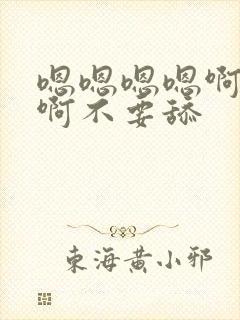 嗯嗯嗯嗯啊
啊不要舔
东海黄小邪